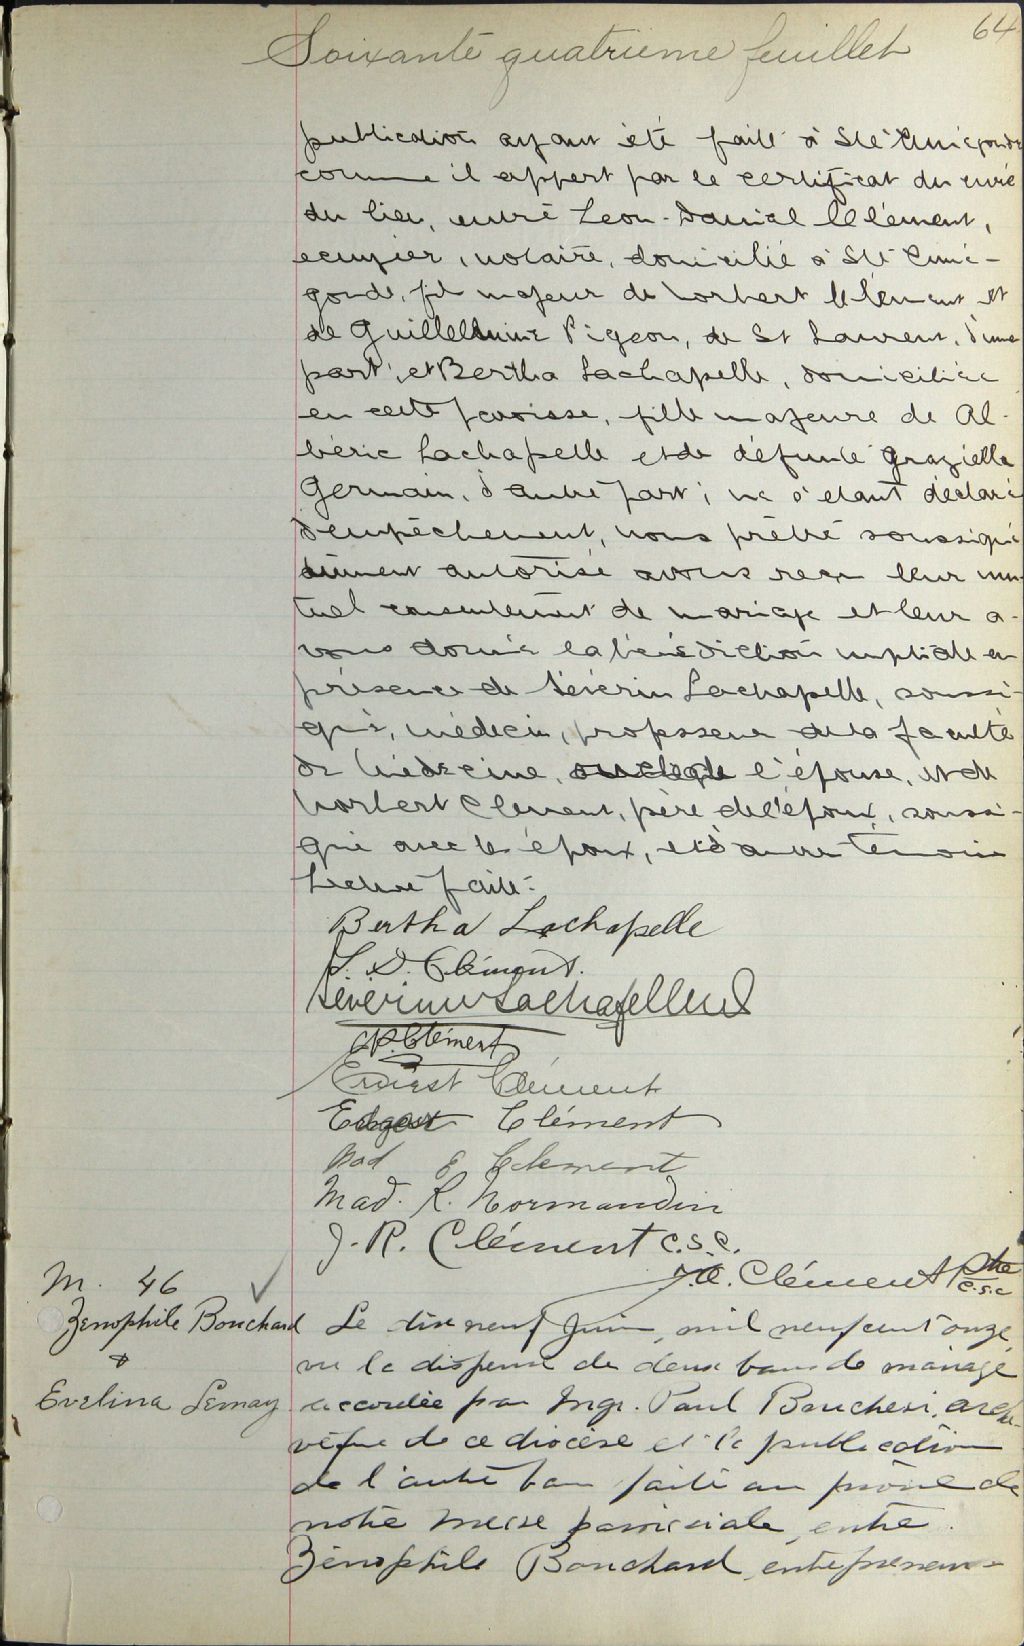 64
Soixante quatrieme feuillet
publication ayant été faite à Ste Cunégonde
comme il appert par le certificat du curé
du lieu, entre Leon-Daniel Clément,
ecuyier, notaire, domicilié à Ste Cuné-
gonde, fils majeur de Norbert Clément et
de Guillelmine Pigeon, de St Laurent, d'une
part, et Bertha Lachapelle, domiciliée
en cette paroisse, fille majeure de Al-
béric Lachapelle et de défunte Grazielle
Germain, d'autre part; ne s'étant déclaré
d'empêchement, nous prêtre soussigné
dûment autorisé avons reçu leur mu-
tuel consentement de mariage et leur a-
vons donné la bénédiction nuptiale en
présence de Séverin Lachapelle, soussi-
gné, médecin, professeur de la faculté
de Médecine, oncle de l'épouse, et de
Norbert Clément, père de l'époux, soussi-
gné avec les époux, et d'autres témoins
Lecture faite.
Bertha Lachapelle
L. D. Clément.
Séverin Lachapelle
Clément
Ernest Clément
Edgar Clément
Mad E Clement
Mad. R. Normandin
J. R. Clément c.s.c.
J. A. Clément Ptre
c.s.c
M. 46
Zenophile Bouchard
&
Evelina Lemay
Le dix neuf Juin, mil neuf cent onze,
vu la dispense de deux bans de mariage
accordée par Mgr. Paul Bruchesi, arche-
vêque de ce diocèse et la publication
de l'autre ban faite au prône de
notre messe paroissiale, entre
Zénophile Bouchard, entrepreneur